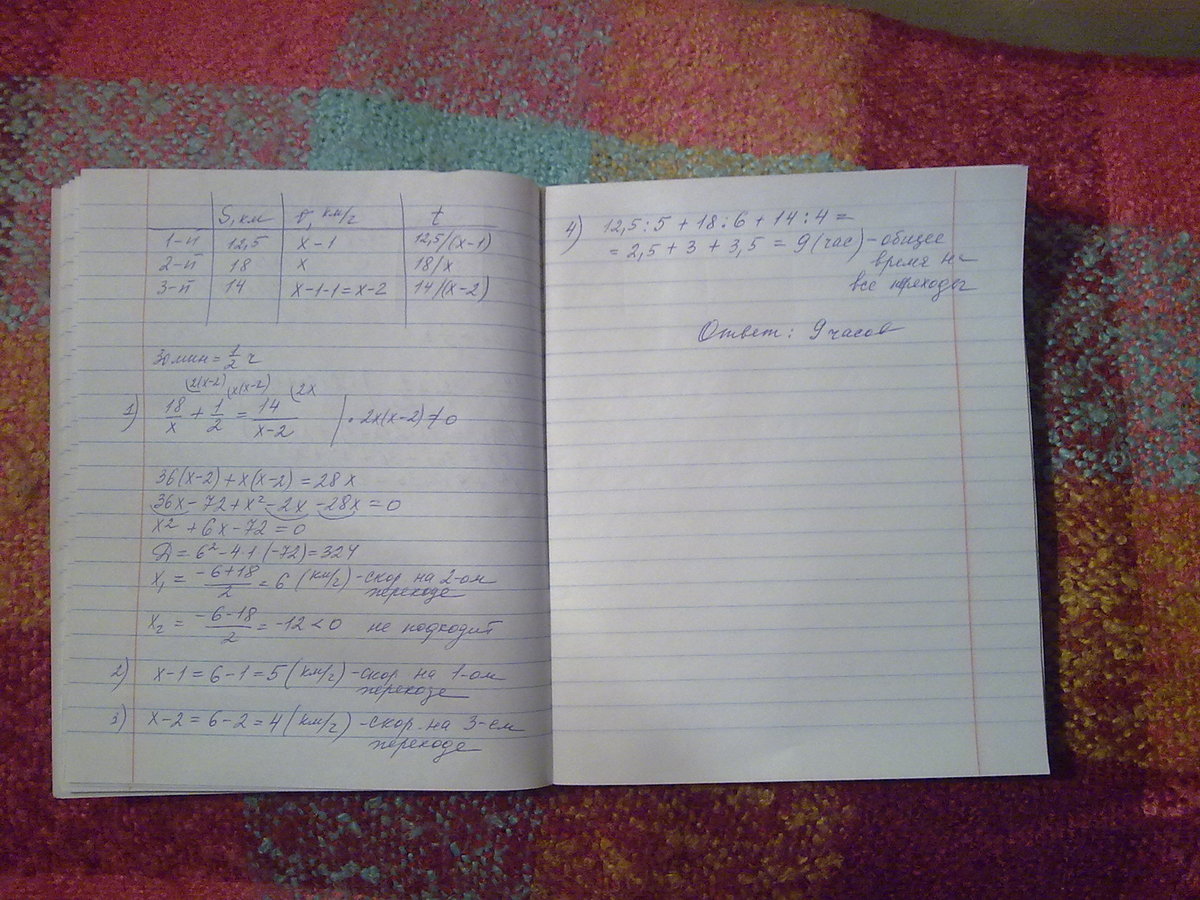 S, км v, км/г t
1-й 12,5 x-1 12,5/(x-1)
2-й 18 x 18/x
3-й 14 x-1-1=x-2 14/(x-2)
30 мин = 1/2 г
2(x-2) x(x-2) 2x
1) 18/x + 1/2 = 14/(x-2) | · 2x(x-2) ≠ 0
36(x-2)+x(x-2)=28x
36x-72+x²-2x-28x=0
x²+6x-72=0
D=6²-4·1(-72)=324
x₁ = (-6+18)/2 = 6 (км/г) - скор на 2-ом
переходе
x₂ = (-6-18)/2 = -12 < 0 не подходит
2) x-1=6-1=5 (км/г) - скор на 1-ом
переходе
3) x-2=6-2=4 (км/г) - скор. на 3-ем
переходе
4) 12,5:5 + 18:6 + 14:4 =
= 2,5 + 3 + 3,5 = 9 (час) - общее
время на
все переходы
Ответ: 9 часов